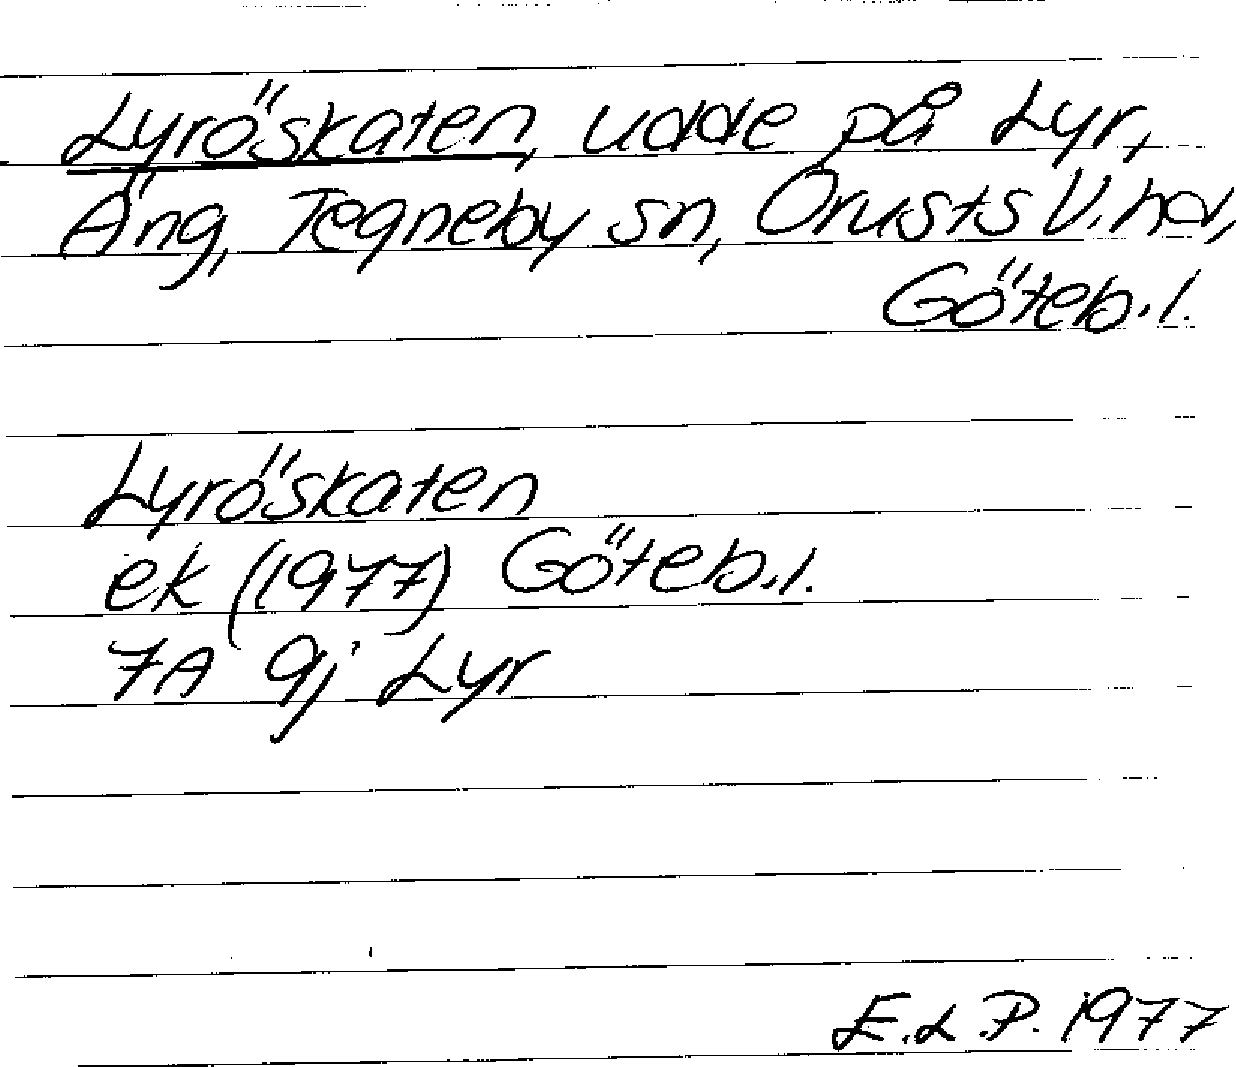 Lyröskaten, udde på Lyr,
Äng, Tegneby sn, Orusts V. hd,
Göteb. l.
Lyröskaten
ek (1977) Göteb. l.
7A 9j Lyr
E. L. P. 1977